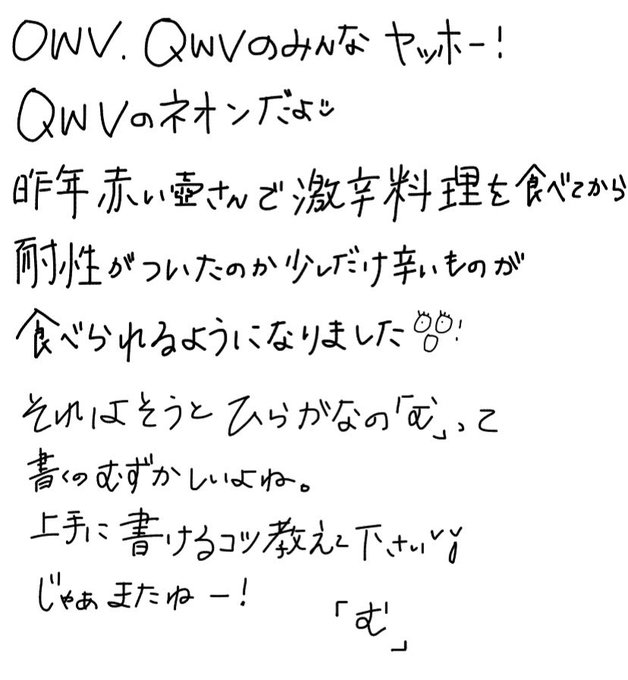 OWV. QWVのみんな ヤッホー!
QWVのネオンだよ
昨年赤い壺さんで激辛料理を食べてから
耐性がついたのか少しだけ辛いものが
食べられるようになりました!
それはそうと ひらがなの「む」って
書くのむずかしいよね。
上手に書けるコツ教えて下さい
じゃぁまたねー!
「む」